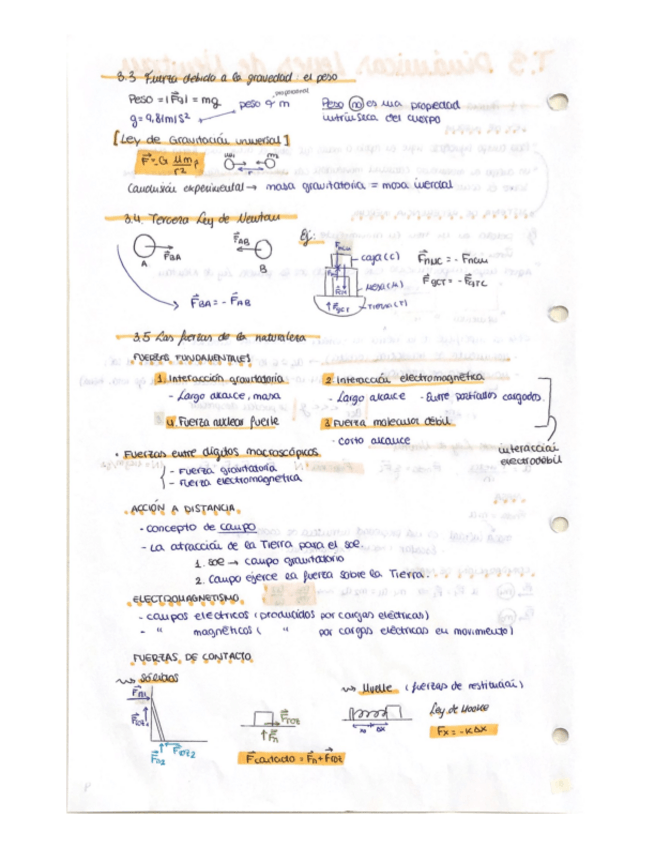 3.3 Fuerza debido a la gravedad: el peso
Peso = |Fg| = mg
peso α m
proporcional
Peso (no) es una propiedad
g = 9,81 m/s²
intrínseca del cuerpo
[Ley de Gravitación universal]
F = G Mm/r² r
m1 m2
r
Conclusión experimental → masa gravitatoria = masa inercial
3.4. Tercera Ley de Newton
Ej:
A
FBA
FAB
B
FBA = - FAB
caja (C)
mesa (M)
Tierra (T)
FgCT
FnMC = - FnCM
FgCT = - FgTC
3.5 Las fuerzas de la naturaleza
FUERZAS FUNDAMENTALES
1. Interacción gravitatoria
- Largo alcance, masa
2. Interacción electromagnética
- Largo alcance - Entre partículas cargadas.
4. Fuerza nuclear fuerte
3. Fuerza molecular débil.
- corto alcance
interacción
electrodébil
• Fuerzas entre objetos macroscópicos
- Fuerza gravitatoria
- Fuerza electromagnética
. ACCIÓN A DISTANCIA.
- concepto de campo
- La atracción de la Tierra para el sol.
1. sol → campo gravitatorio
2. Campo ejerce la fuerza sobre la Tierra.
ELECTROMAGNETISMO
- campos eléctricos (producidos por cargas eléctricas)
- " magnéticos ( " por cargas eléctricas en movimiento)
FUERZAS DE CONTACTO
Sólidos
Muelle (fuerzas de restitución)
Fn1
Froz
Fn2
Froz2
Froz
Fn
x0 Δx
Ley de Hooke
Fx = -KΔx
Fcontacto = Fn + Froz